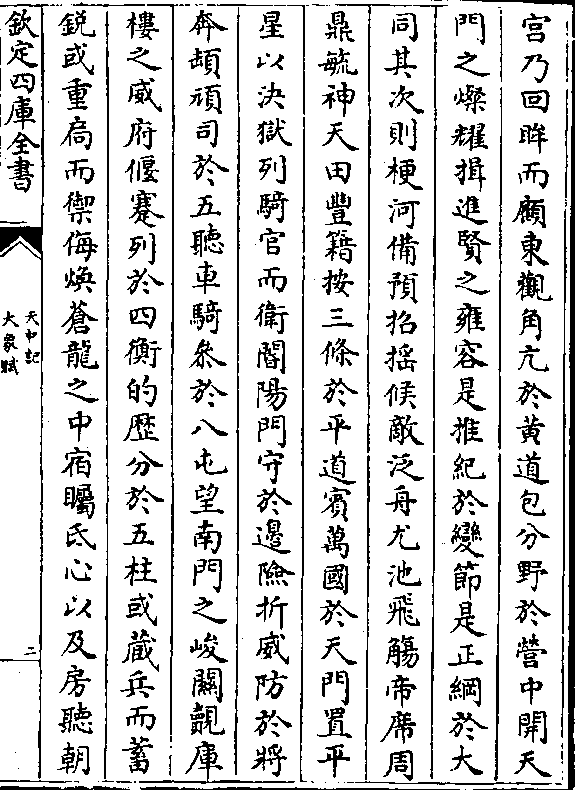 宮乃回眸而顧東觀角亢於黃道包分野於營中開天
門之燦耀揖進賢之雍容是推紀於變節是正綱於大
同其次則梗河備預招揺候敵泛舟尤池飛觴帝席周
鼎毓神天田豐籍按三條於平道賓萬國於天門置平
星以決獄列騎官而衛閽陽門守於邊險折威防於將
奔頡頏司於五聽車騎叅於八屯望南門之峻闗覿庫
樓之威府偃蹇列於四衡的歴分於五柱或蔵兵而蓄
鋭或重扄而禦侮煥蒼龍之中宿矚氐心以及房聽朝
欽定四庫全書
天中記
大象賦
二